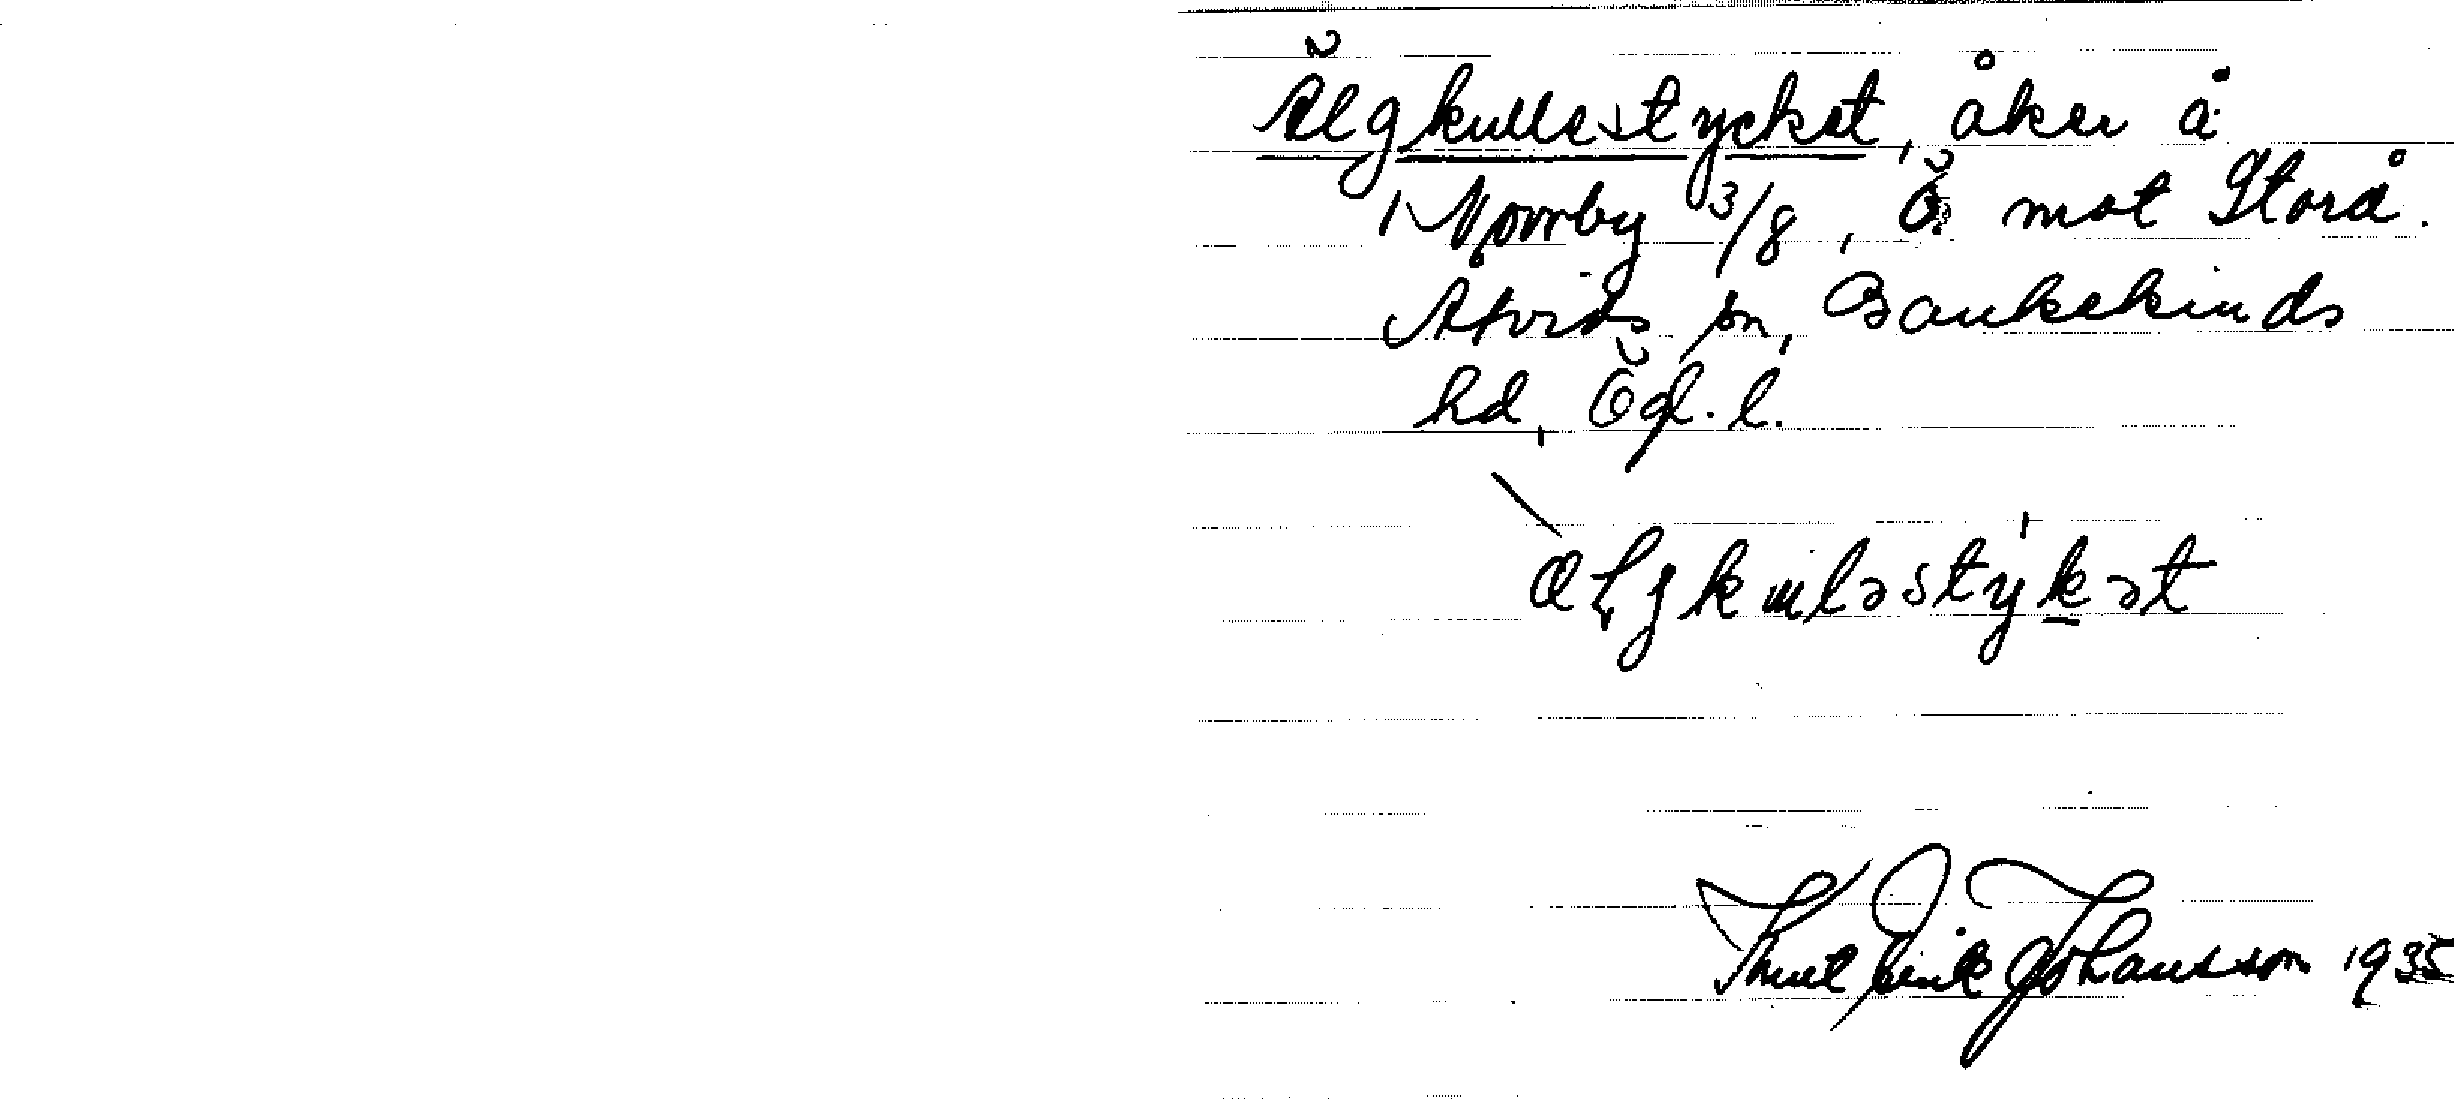 Älgkullestycket, åker å
Norrby 3/8, Ö mot Storå.
Åtvids sn, Bankekinds
hd, Ögl. l.
ælgkuləstykət
Knut Erik Johansson 1935